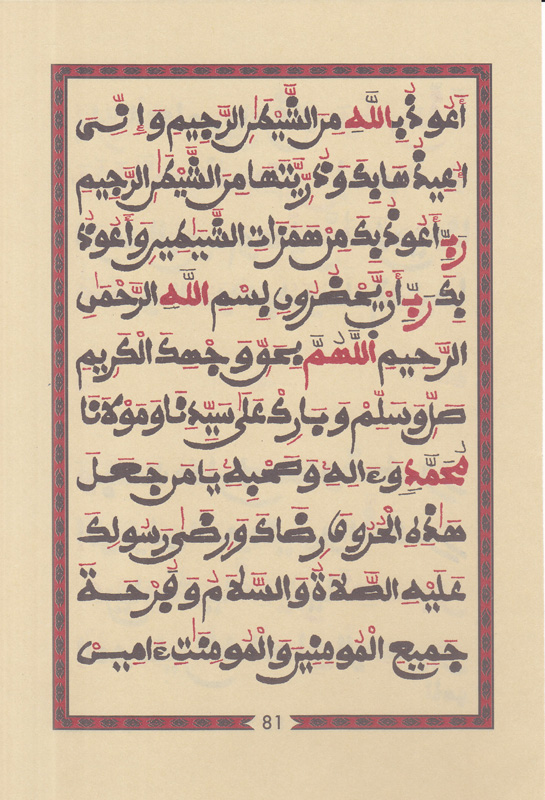 أَعُوذُ بِاللَّهِ مِنَ الشَّيْطَٰنِ الرَّجِيمِ وَإِنِّىَ
أُعِيذُهَا بِكَ وَذُرِّيَّتَهَا مِنَ الشَّيْطَٰنِ الرَّجِيمِ
رَبِّ أَعُوذُ بِكَ مِنْ هَمَزَاتِ الشَّيَٰطِينِ وَأَعُوذُ
بِكَ رَبِّ أَنْ يَّحْضُرُونِ بِسْمِ اللَّهِ الرَّحْمَٰنِ
الرَّحِيمِ اللَّهُمَّ بِحَقِّ وَجْهِكَ الْكَرِيمِ
صَلِّ وَسَلِّمْ وَبَارِكْ عَلَىٰ سَيِّدِنَا وَمَوْلَانَا
مُحَمَّدٍ وَءَالِهِ وَصَحْبِهِ يَا مَن جَعَلَ
هَٰذِهِ الْحُرُوفَ رِضَاكَ وَرِضَىٰ رَسُولِكَ
عَلَيْهِ الصَّلَاةُ وَالسَّلَامُ وَفَرْحَةَ
جَمِيعِ الْمُومِنِينَ وَالْمُومِنَٰتِ ءَامِينْ
81